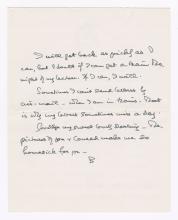 I will get back as quickly as I
can, but I doubt if I can get a train the
night of my lecture. If I can, I will.
Sometimes I can't send letters by
air-mail — when I am in trains. That
is why my letters sometimes miss a day.
Goodbye my sweet lovely darling — the
pictures of you & Conrad make me so
homesick for you —
B